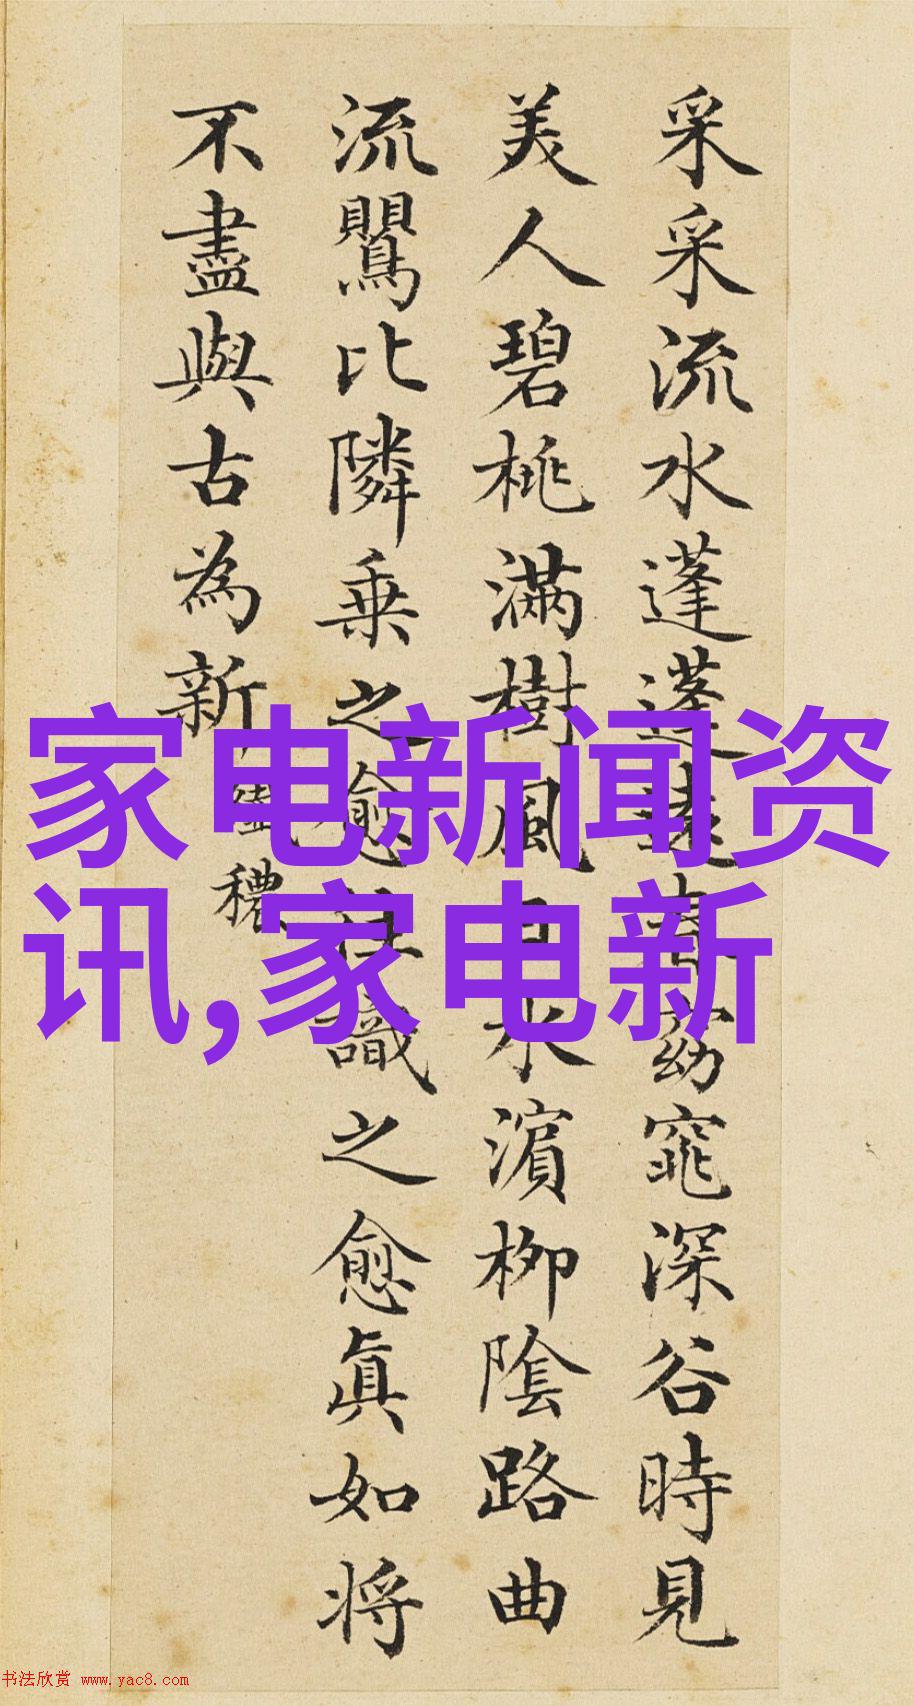 采采流水蓬蓬遠春窈窕深谷時見
美人碧桃滿樹風日水濱柳陰路曲
流鸎比隣乗之愈往識之愈眞如将
不盡與古為新
穠
家电新闻资
讯,家电新
书法欣赏 www.yac8.com